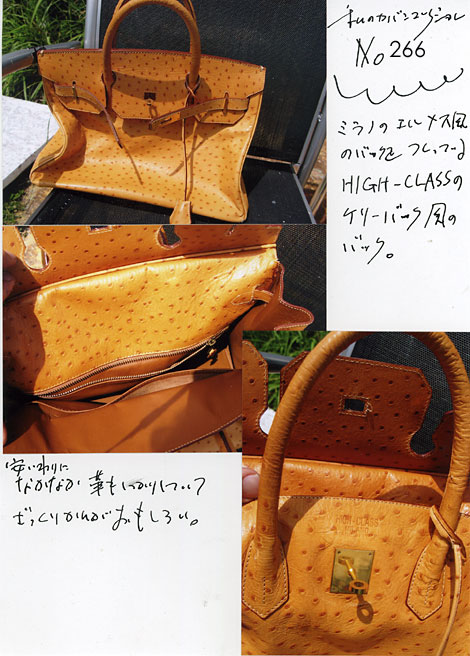 私のカバンコレクション
No 266
ミラノのエルメス風
のバックを つくっている
HIGH-CLASSの
ケリーバック風の
バック。
安いわりに
なかなか 革もしっかりしていて
ざっくりかんがおもしろい。
HIGH CLASS